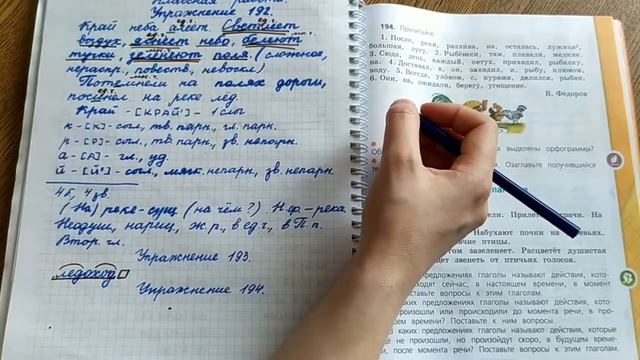 Классная работа.
Упражнение 192.
Край неба алеет. Светлеет
воздух, яснеет небо, белеют
тучки, зеленеют поля. (сложное,
нераспр., повеств., невоскл.)
Потемнели на полях дороги,
посинел на реке лёд.
Край – [КРАЙ'] – 1 слог
к – [К] – согл., тв. парн., гл. парн.
р – [Р] – согл., тв. парн., зв. непарн.
а – [А] – гл., уд.
й – [Й'] – согл., мягк. непарн., зв. непарн.
4 б., 4 зв.
(На) реке – сущ. (на чём?). Н.ф. – река.
Неодуш., нариц., ж.р., в ед.ч., в П.п.
Втор. чл.
Упражнение 193.
ледоход
Упражнение 194.
194. Прочитайте.
1. После, реки, разлива, на, осталась, лужица³,
большая, лугу. 2. Рыбёшки, там, плавали, мелкие.
3. Сюда, день, каждый, петух, приходил, рыбалку,
на. 4. Доставал, в, он, заходил, и, рыбу, клювом,
воду. 5. Всегда, уловом, с, курами, делился, рыбак.
6. Они, на, ожидали, берегу, угощение.
В. Фёдоров
выделены орфограммы?
Озаглавьте получившийся
На
Набухают почки на деревьях.
птицы.
зазеленеет. Расцветёт душистая
дет звенеть от птичьих голосов.
предложениях глаголы называют действия, кото-
сейчас, в настоящем времени, в момент
поставьте вопросы к этим глаголам.
предложениях глаголы называют действия, кото-
произошли или происходили до момента речи, в про-
времени? Поставьте к ним вопросы.
каких предложениях глаголы называют действия, которые
не произошли, но произойдут скоро, в будущем време-
после момента речи? Поставьте к этим глаголам